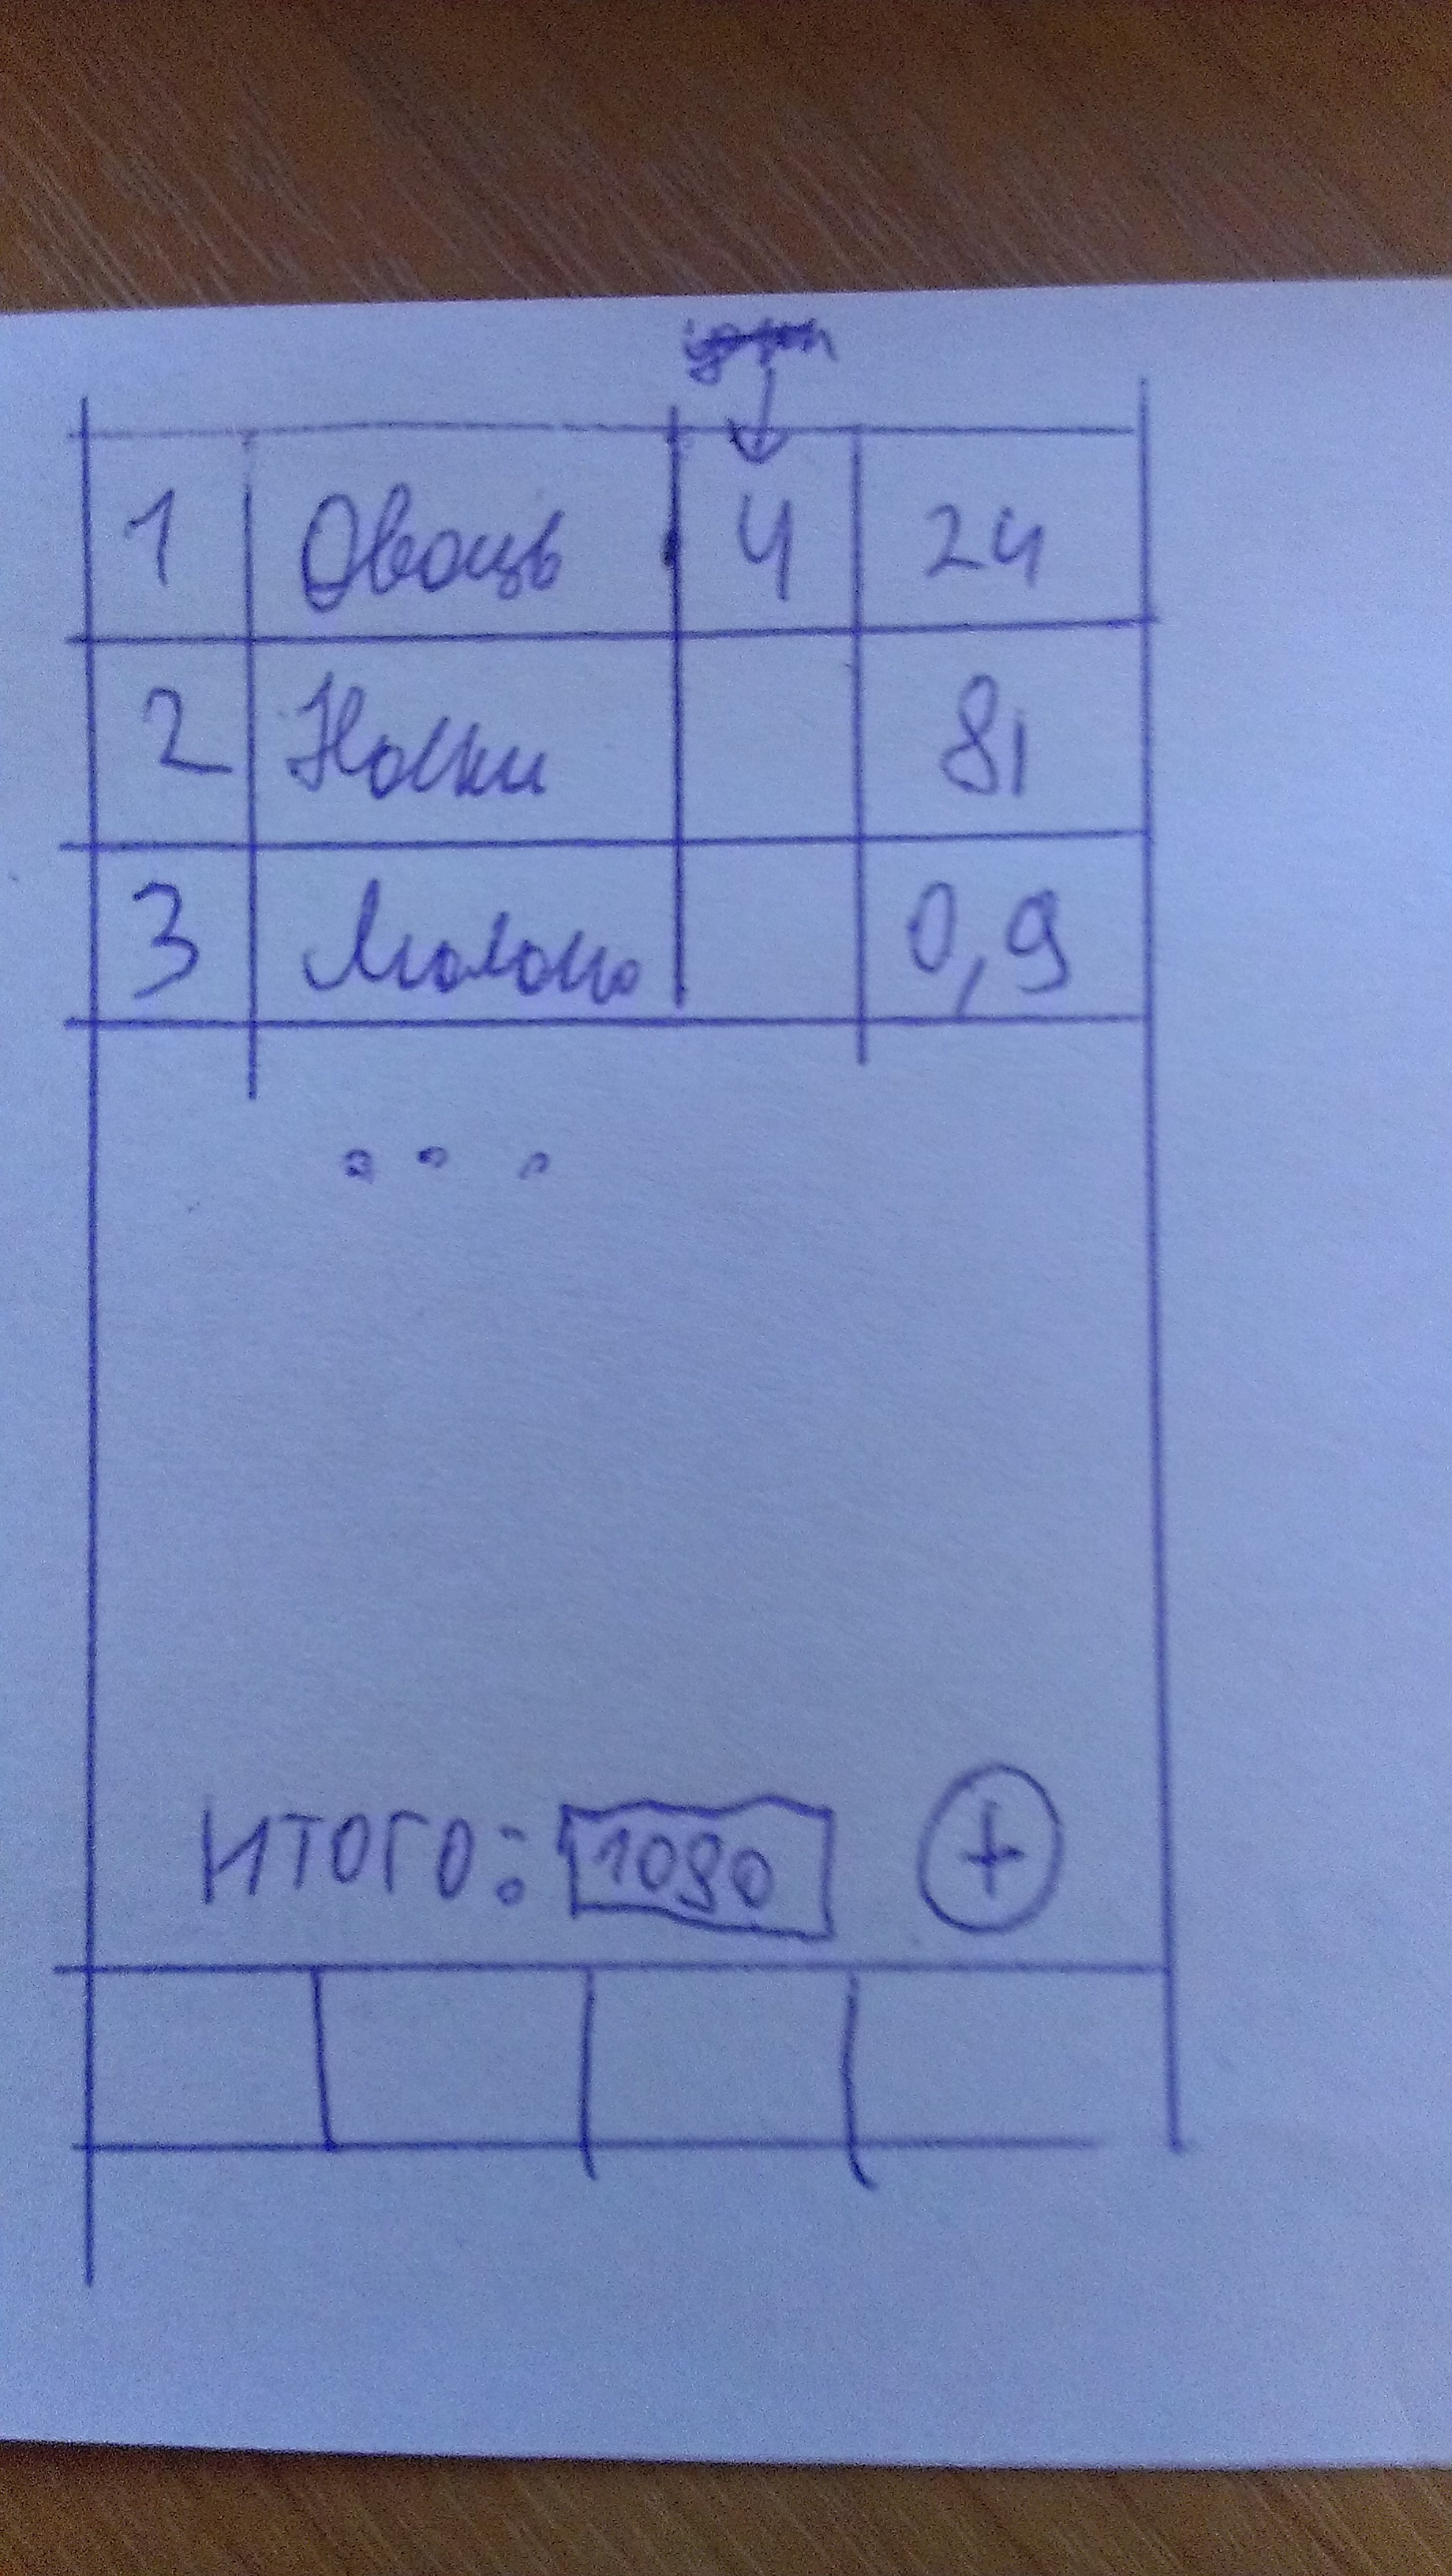 1 Овощь 4 24
2 Носки 81
3 Молоко 0,9
...
ИТОГО: 1090 +